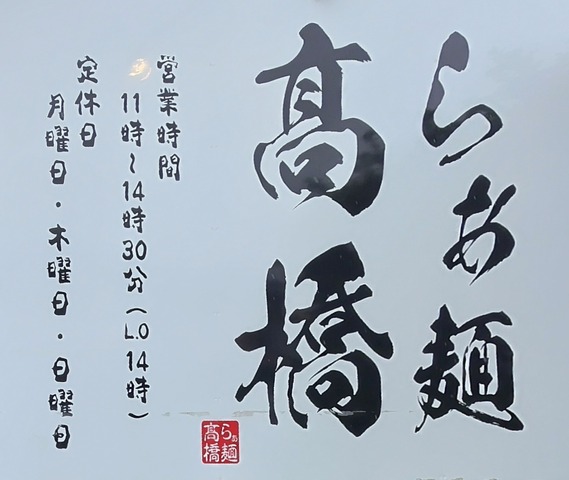 らぁ麺
髙橋
営業時間
11時~14時30分(L.O 14時)
定休日
月曜日・木曜日・日曜日
らぁ麺
髙橋